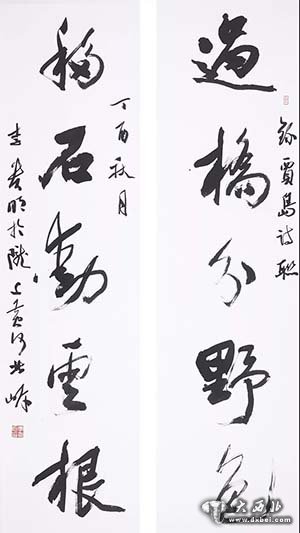 過橋分野色
錄賈島詩聯
移石動雲根
丁酉秋月
李貴明於隴上黃河北岸
大西北网
www.dxbei.com